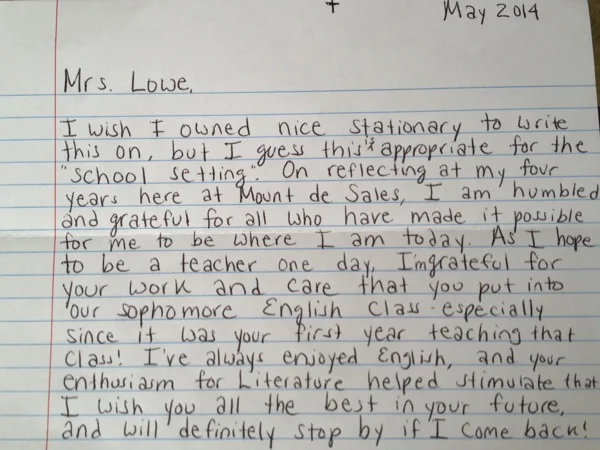 +
May 2014
Mrs. Lowe,
I wish I owned nice stationary to write
this on, but I guess this is appropriate for the
"school setting". On reflecting at my four
years here at Mount de Sales, I am humbled
and grateful for all who have made it possible
for me to be where I am today. As I hope
to be a teacher one day, I'm grateful for
your work and care that you put into
our sophomore English Class - especially
since it was your first year teaching that
class! I've always enjoyed English, and your
enthusiasm for Literature helped stimulate that
I wish you all the best in your future,
and will definitely stop by if I come back!